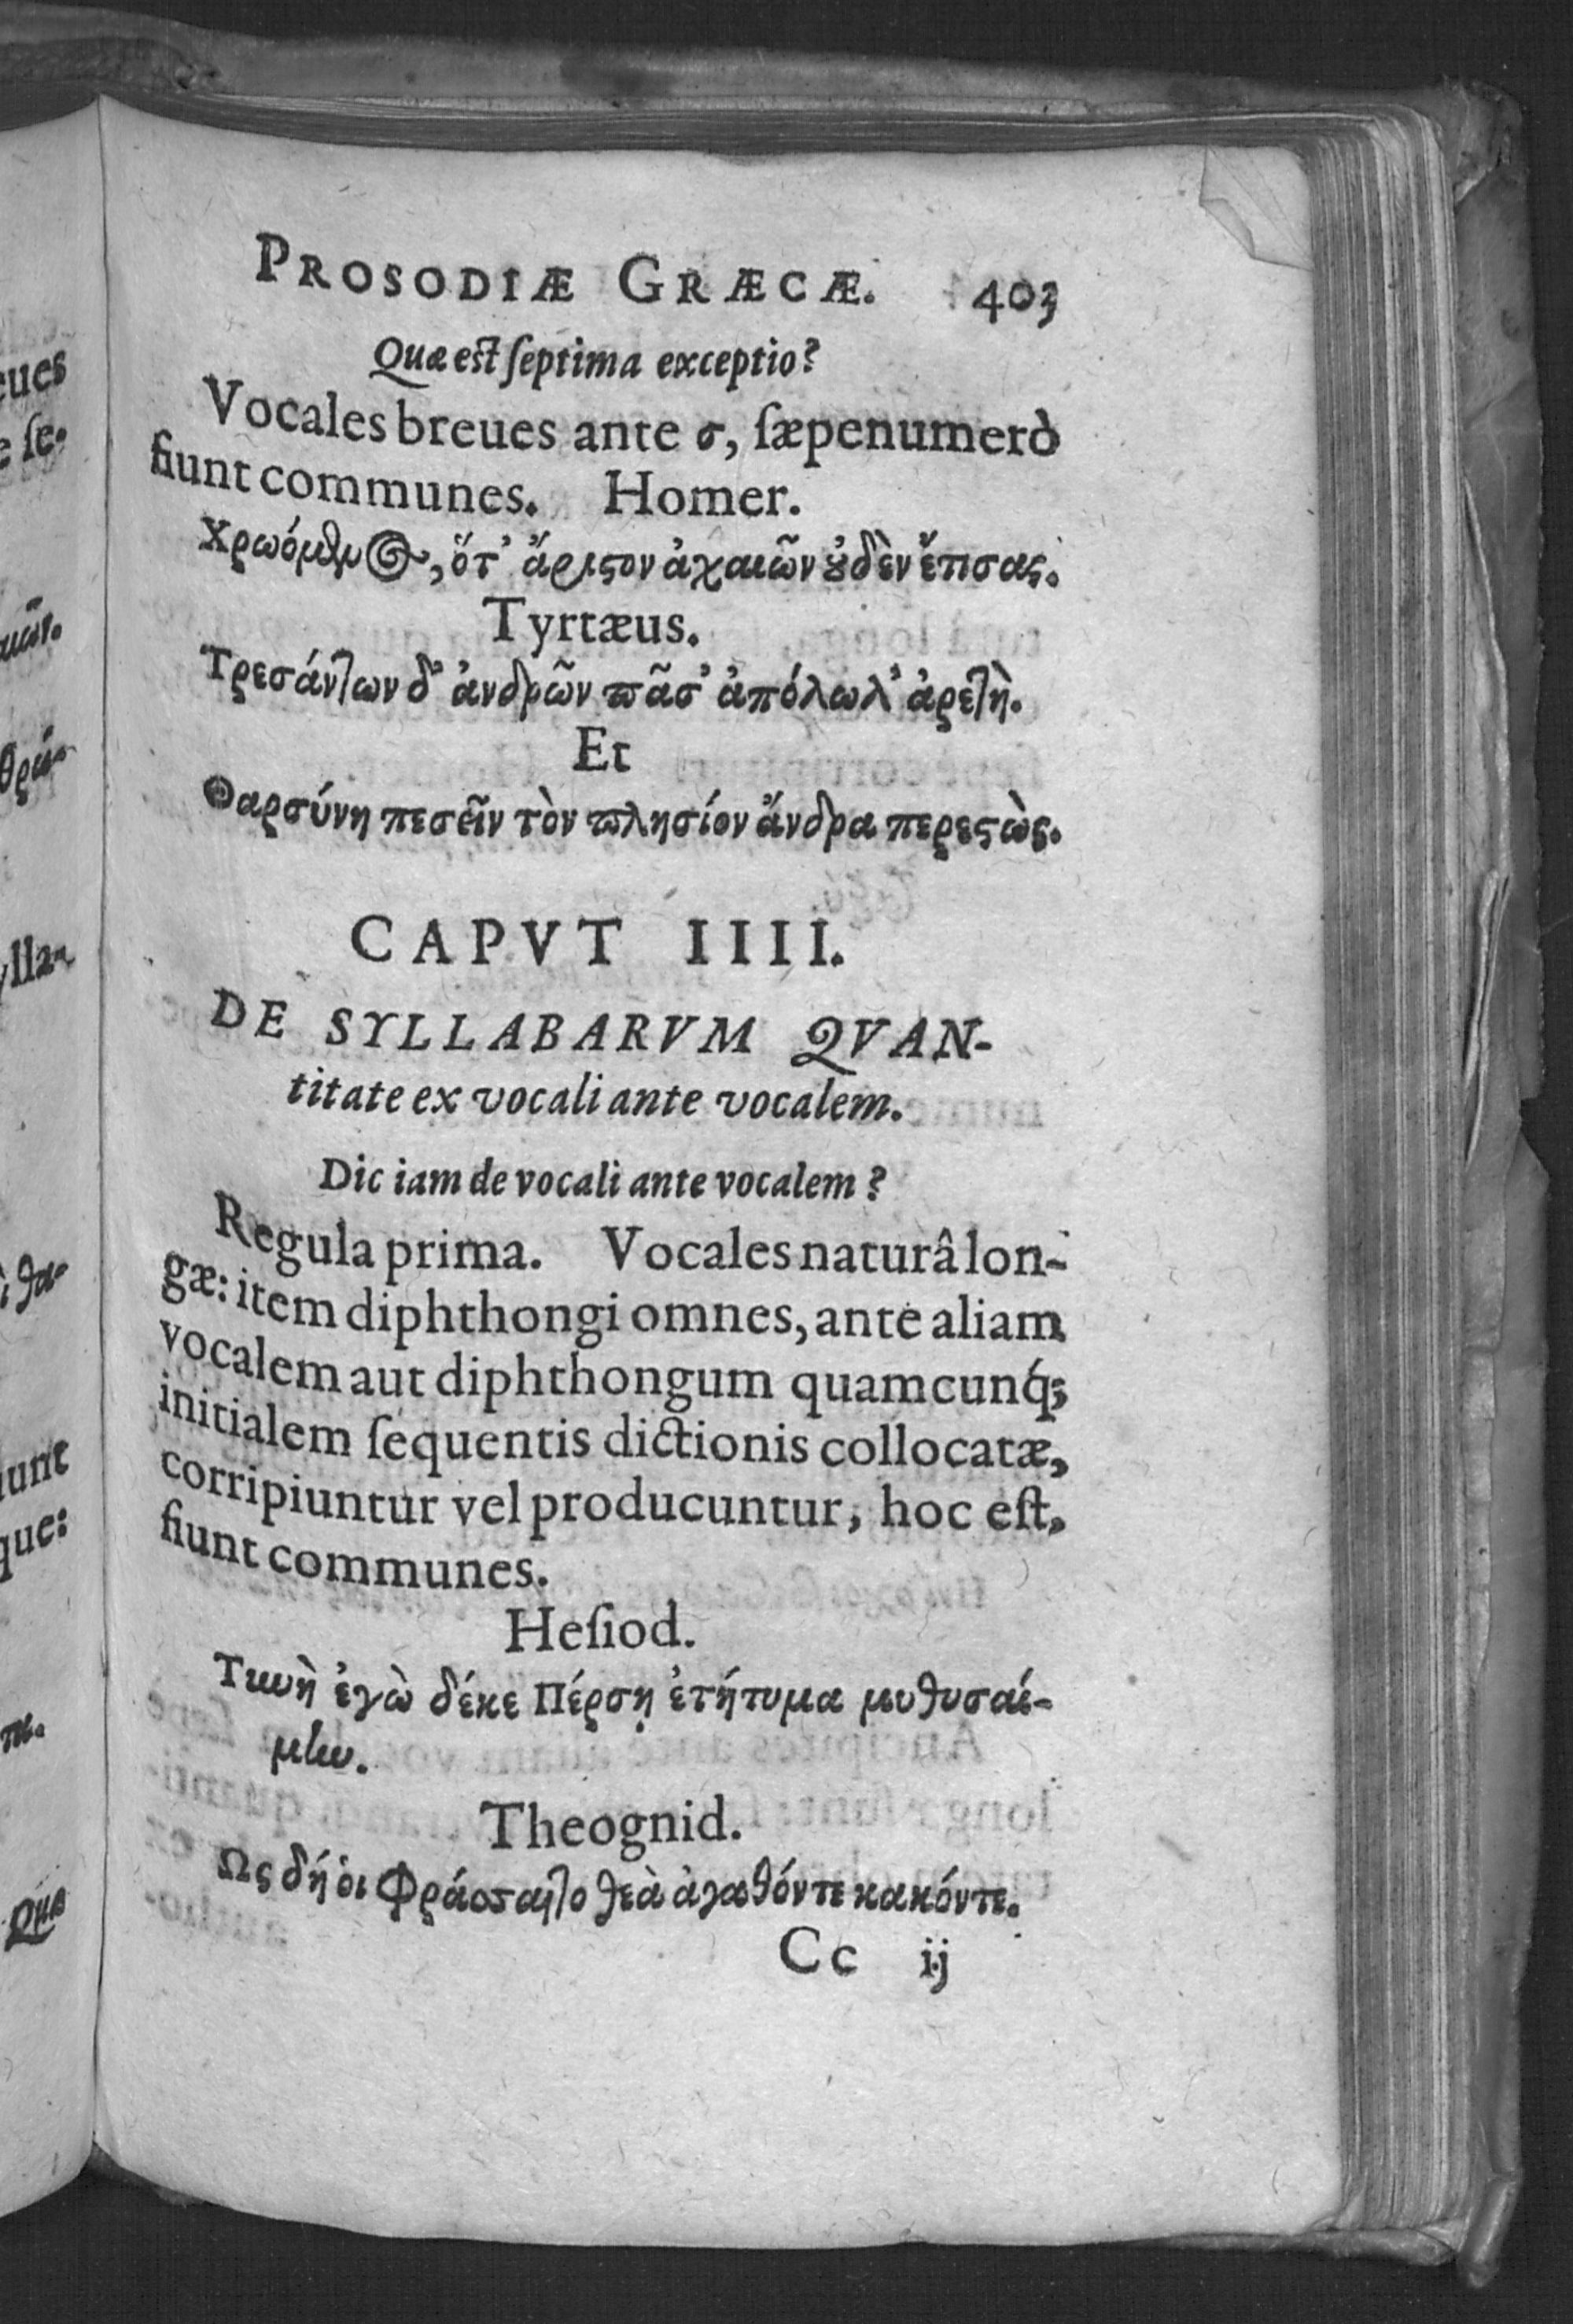 PROSODIÆ GRÆCÆ. 403
Quæ est ſeptima exceptio?
Vocales breues ante σ, ſæpenumerò
fiunt communes. Homer.
Χρωόμενος, ὅτ' ἄριςον ἀχαιῶν ȣ̓δὲν ἔτισας.
Tyrtæus.
Τρεσάντων δ' ἀνδρῶν πᾶσ' ἀπόλωλ' ἀρετὴ.
Et
Θαρσύνη πεσεῖν τὸν πλησίον ἄνδρα περεςὼς.
CAPVT IIII.
DE SYLLABARVM QVAN-
titate ex vocali ante vocalem.
Dic iam de vocali ante vocalem?
Regula prima. Vocales naturâ lon-
gæ: item diphthongi omnes, ante aliam
vocalem aut diphthongum quamcunq́;
initialem ſequentis dictionis collocatæ,
corripiuntur vel producuntur, hoc eſt,
fiunt communes.
Heſiod.
Τιωὴ ἐγὼ δέκε Πέρσῃ ἐτήτυμα μυθυσαί-
μίω.
Theognid.
Ως δή ὁι Φράοσαιτο θεὰ ἀγαθόντε κακόντε.
Cc ij
eues
e ſe.
αιῶν.
ylla-
iunt
que:
Quæ